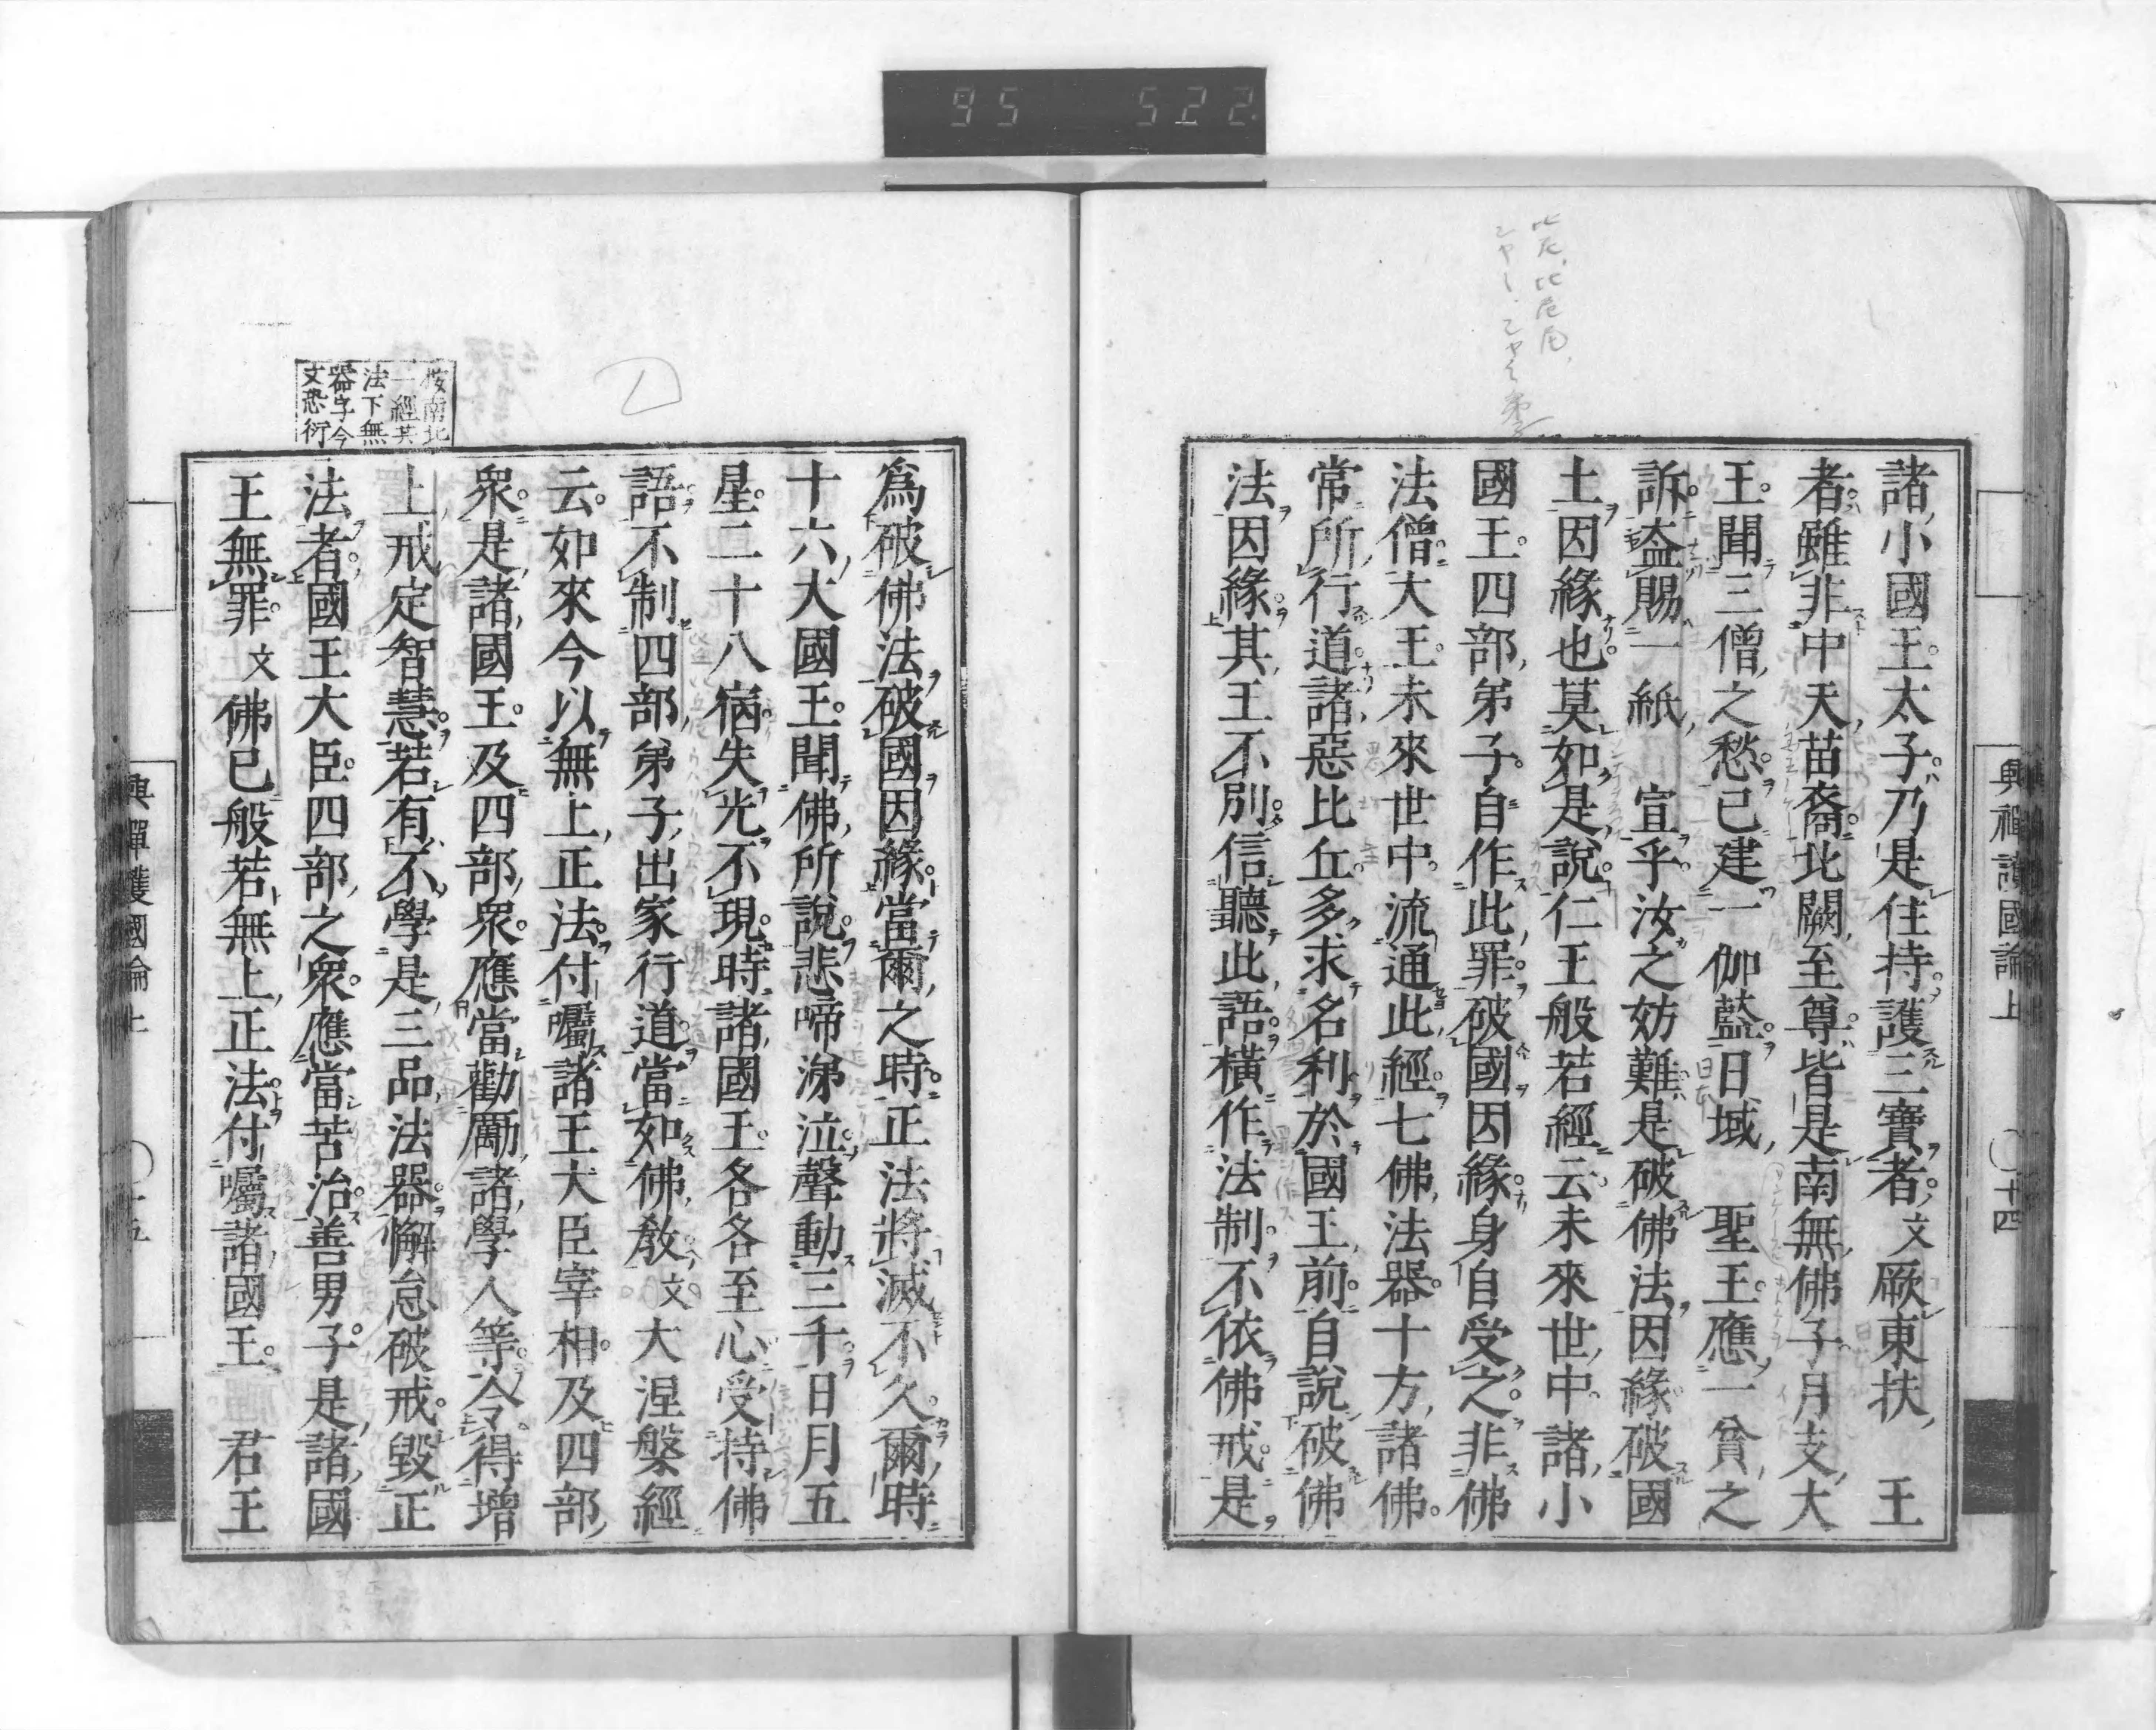 95 522
興禪護國論上 〇十四
諸小國王太子乃是住持護三寶者文厥東扶 王
者雖非中天苗裔北闕至尊皆是南無佛子月支大
王聞三僧之愁已建一伽藍日域 聖王應一貧之
訴盍賜一紙 宣乎汝之妨難是破佛法因緣破國
土因緣也莫如是說仁王般若經云未來世中諸小
國王四部弟子自作此罪破國因緣身自受之非佛
法僧大王未來世中流通此經七佛法器十方諸佛
常所行道諸惡比丘多求名利於國王前自說破佛
法因緣其王不別信聽此語橫作法制不依佛戒是
爲破佛法破國因緣當爾之時正法將滅不久爾時
十六大國王聞佛所說悲啼涕泣聲動三千日月五
星二十八宿失光不現時諸國王各各至心受持佛
語不制四部弟子出家行道當如佛教文大涅槃經
云如來今以無上正法付囑諸王大臣宰相及四部
衆是諸國王及四部衆應當勸勵諸學人等令得增
上戒定智慧若有不學是三品法器懈怠破戒毀正
法者國王大臣四部之衆應當苦治善男子是諸國
王無罪文佛已般若無上正法付囑諸國王 君王
按南北
一經其
法下無
器字今
文恐衍
興禪護國論上 〇十五